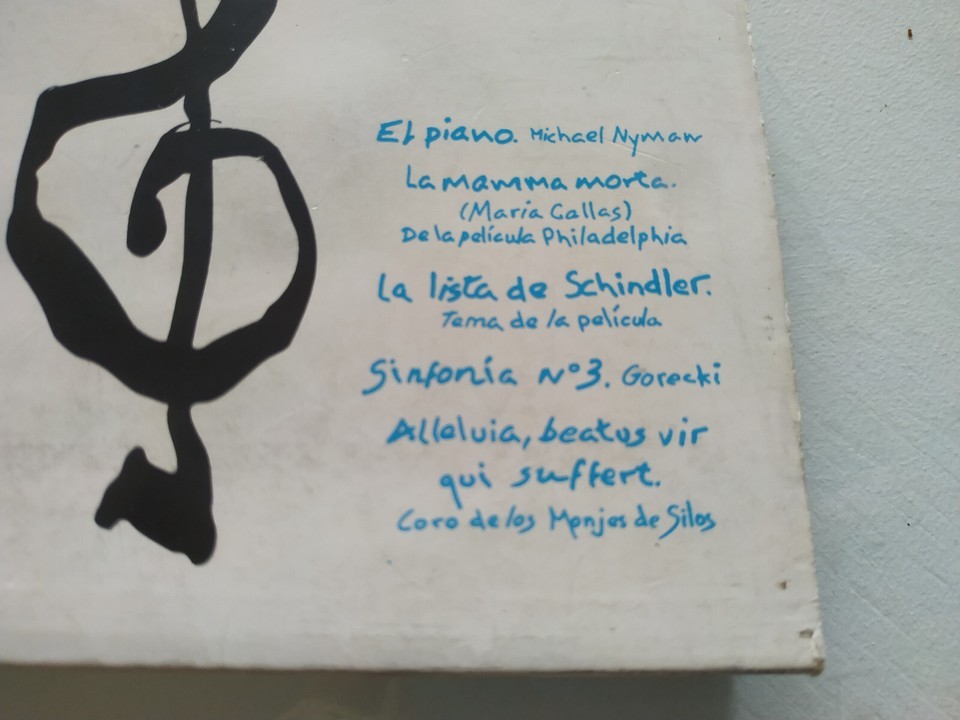 El piano. Michael Nyman
La mamma morta.
(María Callas)
De la película Philadelphia
La lista de Schindler.
Tema de la película
Sinfonía Nº3. Gorecki
Alleluia, beatus vir
qui suffert.
Coro de los Monjes de Silos